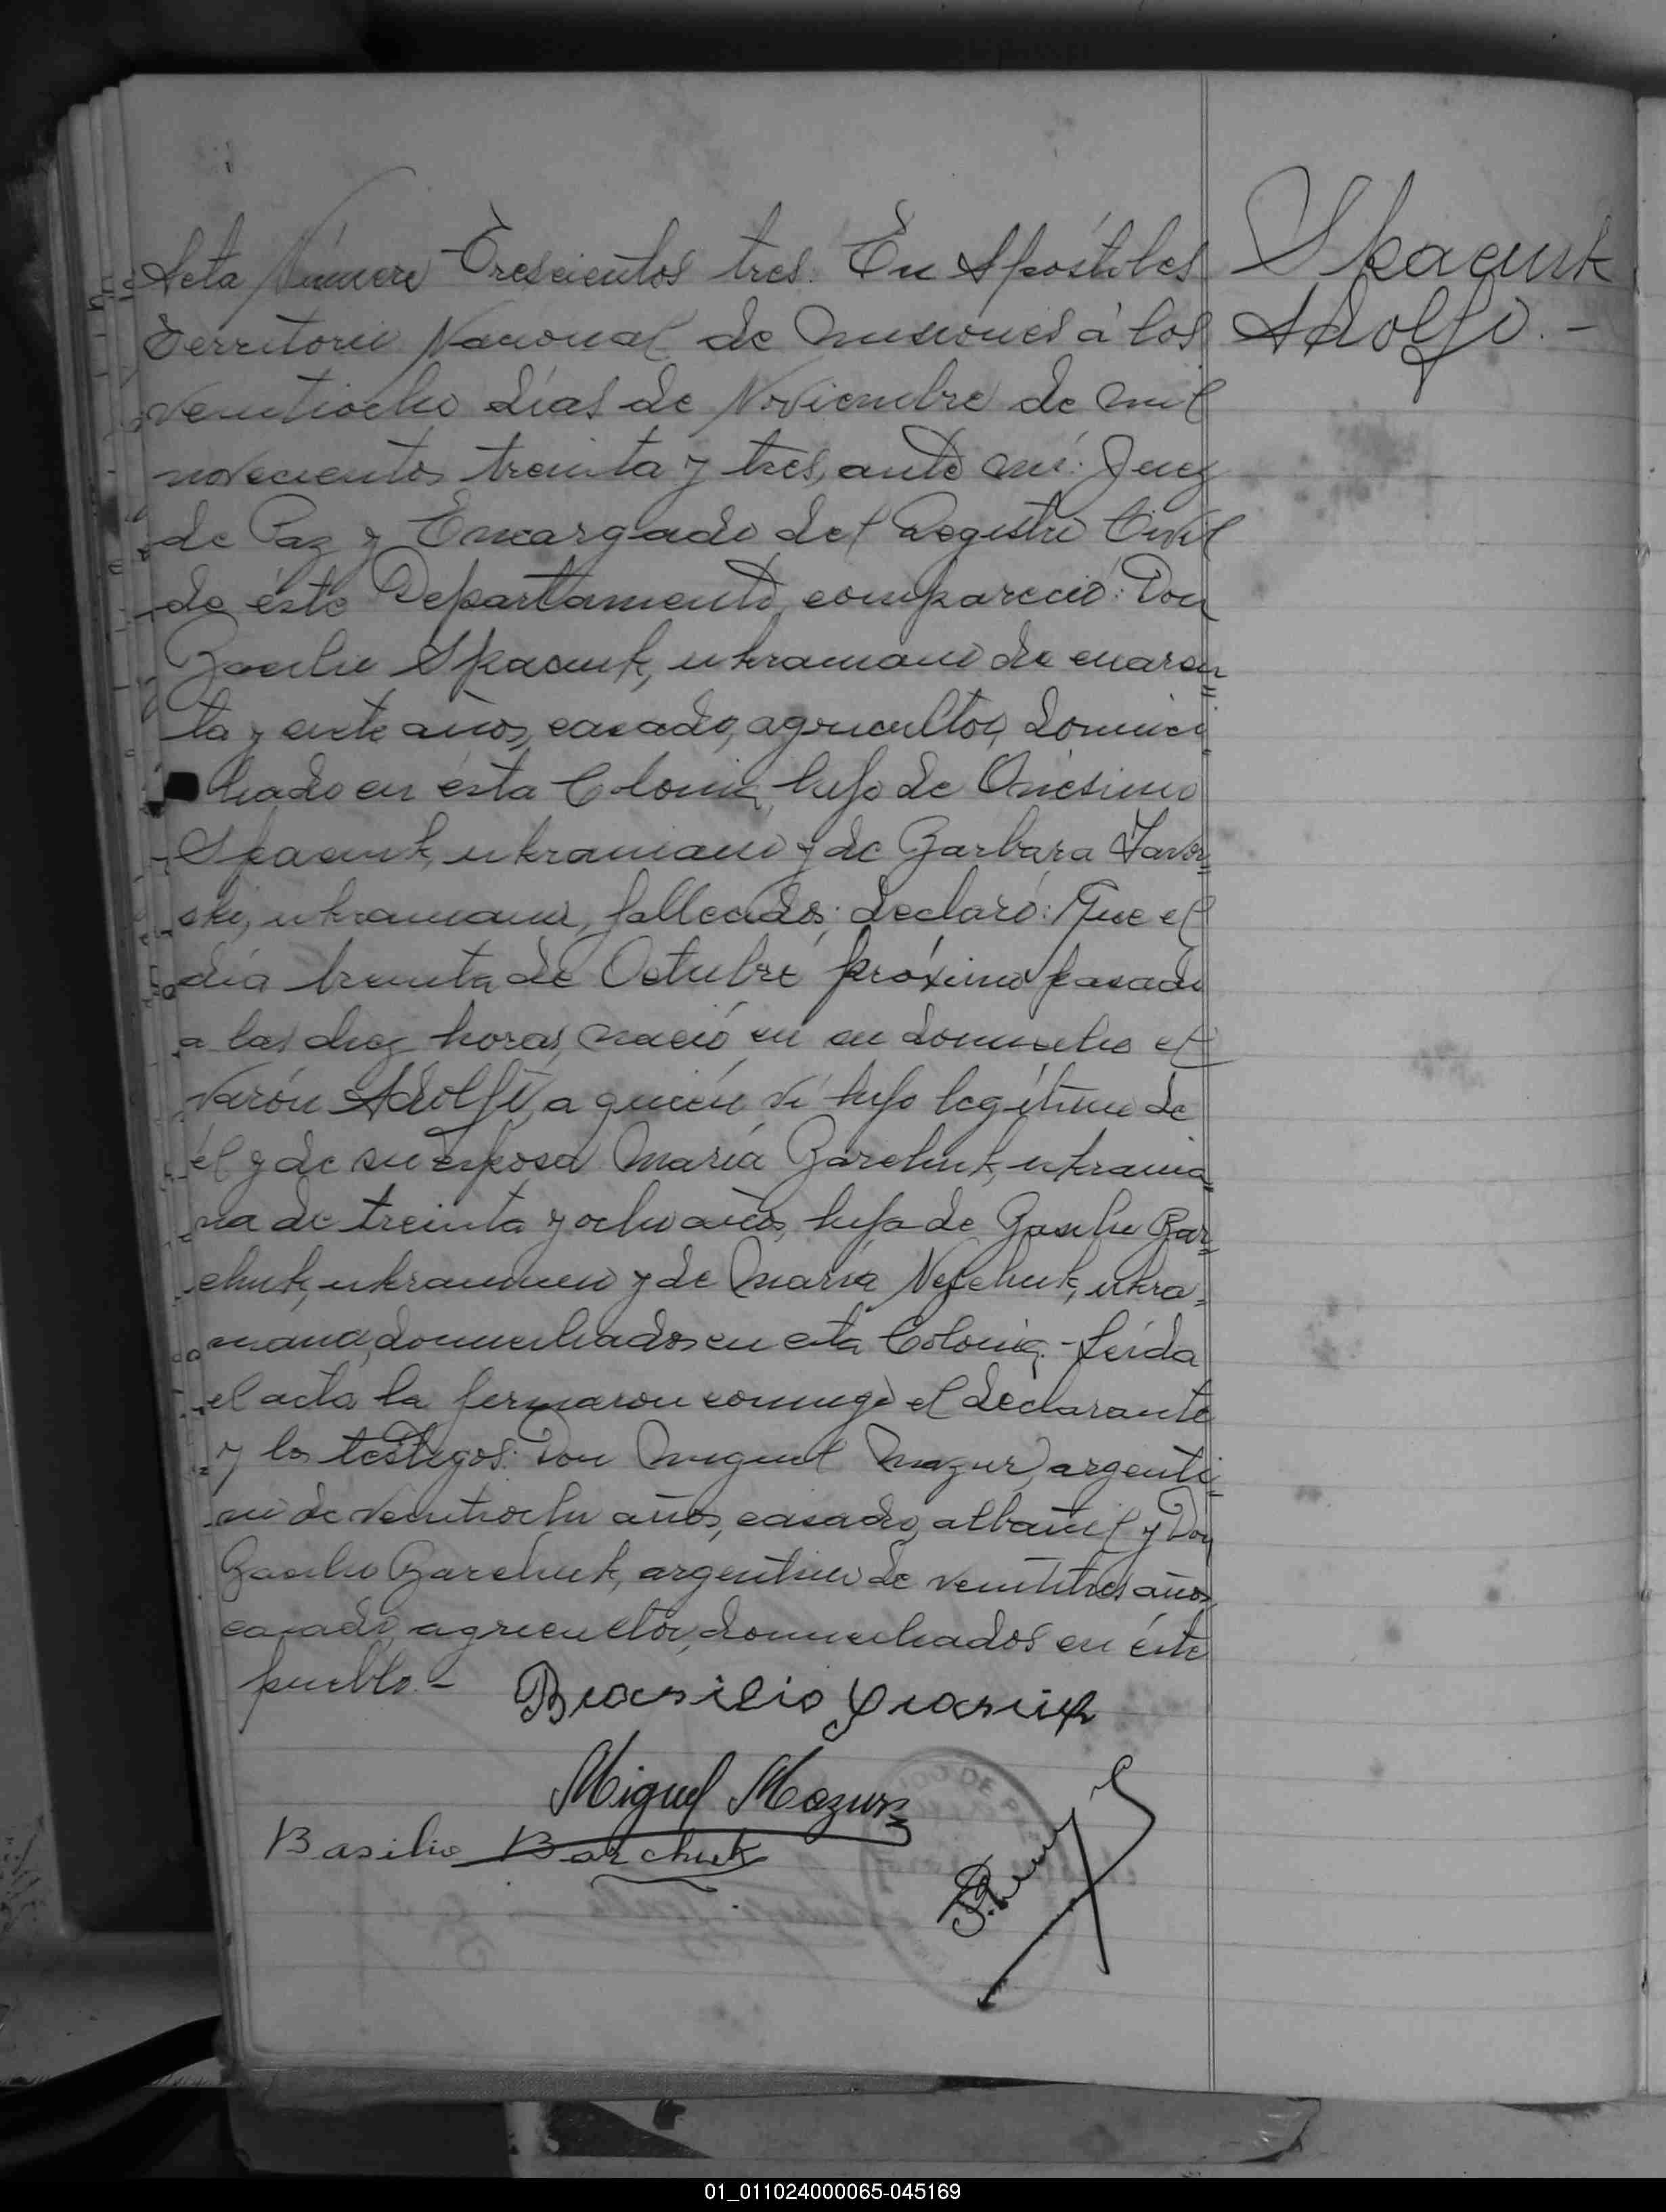 Acta Número Trescientos tres. En Apóstoles
Spacuk
Territorio Nacional de Misiones á los
Adolfo. -
veintiocho días de Noviembre de mil
novecientos treinta y tres, ante mí: Juez
de Paz y Encargado del Registro Civil
de éste Departamento, compareció: Don
Basilio Spacuk, ukraniano de cuaren=
ta y siete años, casado, agricultor, domici=
liado en ésta Colonia, hijo de Onésimo
Spacuk, ukraniano y de Barbara Javor=
ski, ukraniana, fallecidos; declaró: Que el
día treinta de Octubre próximo pasado
a las diez horas, nació en su domicilio el
varón Adolfo, a quien ví hijo legítimo de
él y de su esposa María Barchuk, ukrania=
na de treinta y ocho años, hija de Basilio Bar=
chuk, ukraniano y de María Nefchuk, ukra=
niana, domiciliados en esta Colonia. - Leída
el acta la firmaron conmigo el declarante
y los testigos: Don Miguel Mazur, argenti=
no de veintiocho años, casado, albañil y Don
Basilio Barchuk, argentino de veintitres años,
casado, agricultor, domiciliados en éste
pueblo. -
Miguel Mazur
Basilio Barchuk
01_011024000065-045169